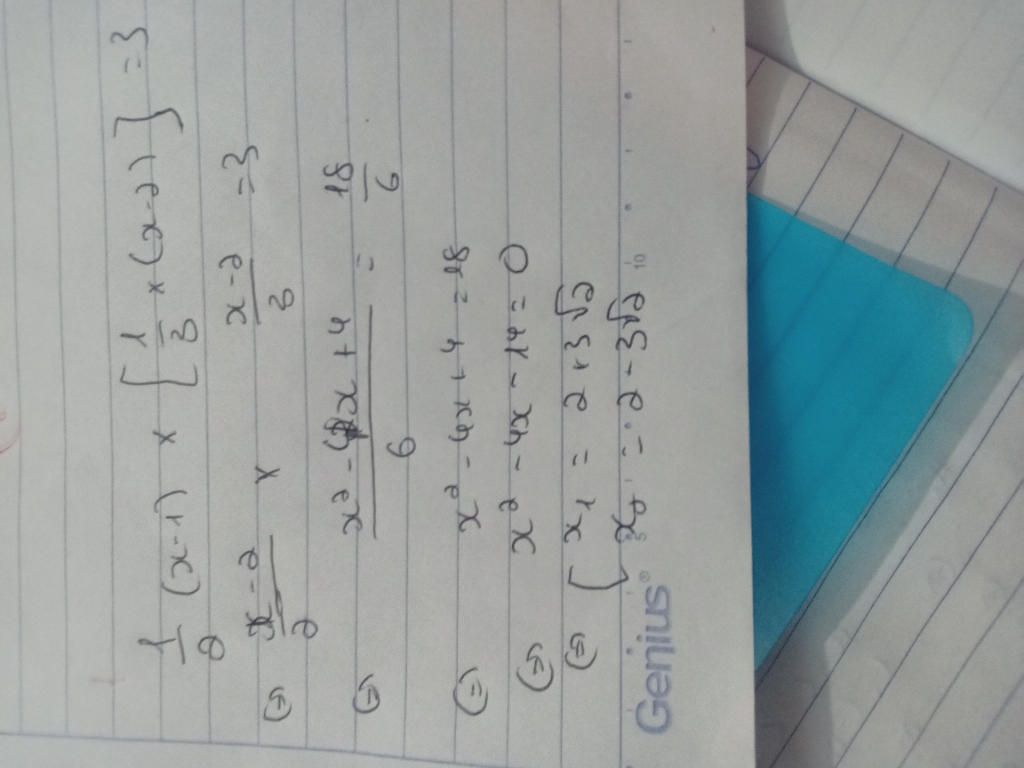 1/2 (x-1) x [1/3 x (x-2)] = 3
(=) x-2/2 x x-2/3 = 3
(=) x² - 4x + 4/6 = 18/6
(=) x² - 4x + 4 = 18
(=) x² - 4x - 14 = 0
(=) [x₁ = 2 + 3√2
x₂ = 2 - 3√2
Genius®
5 10